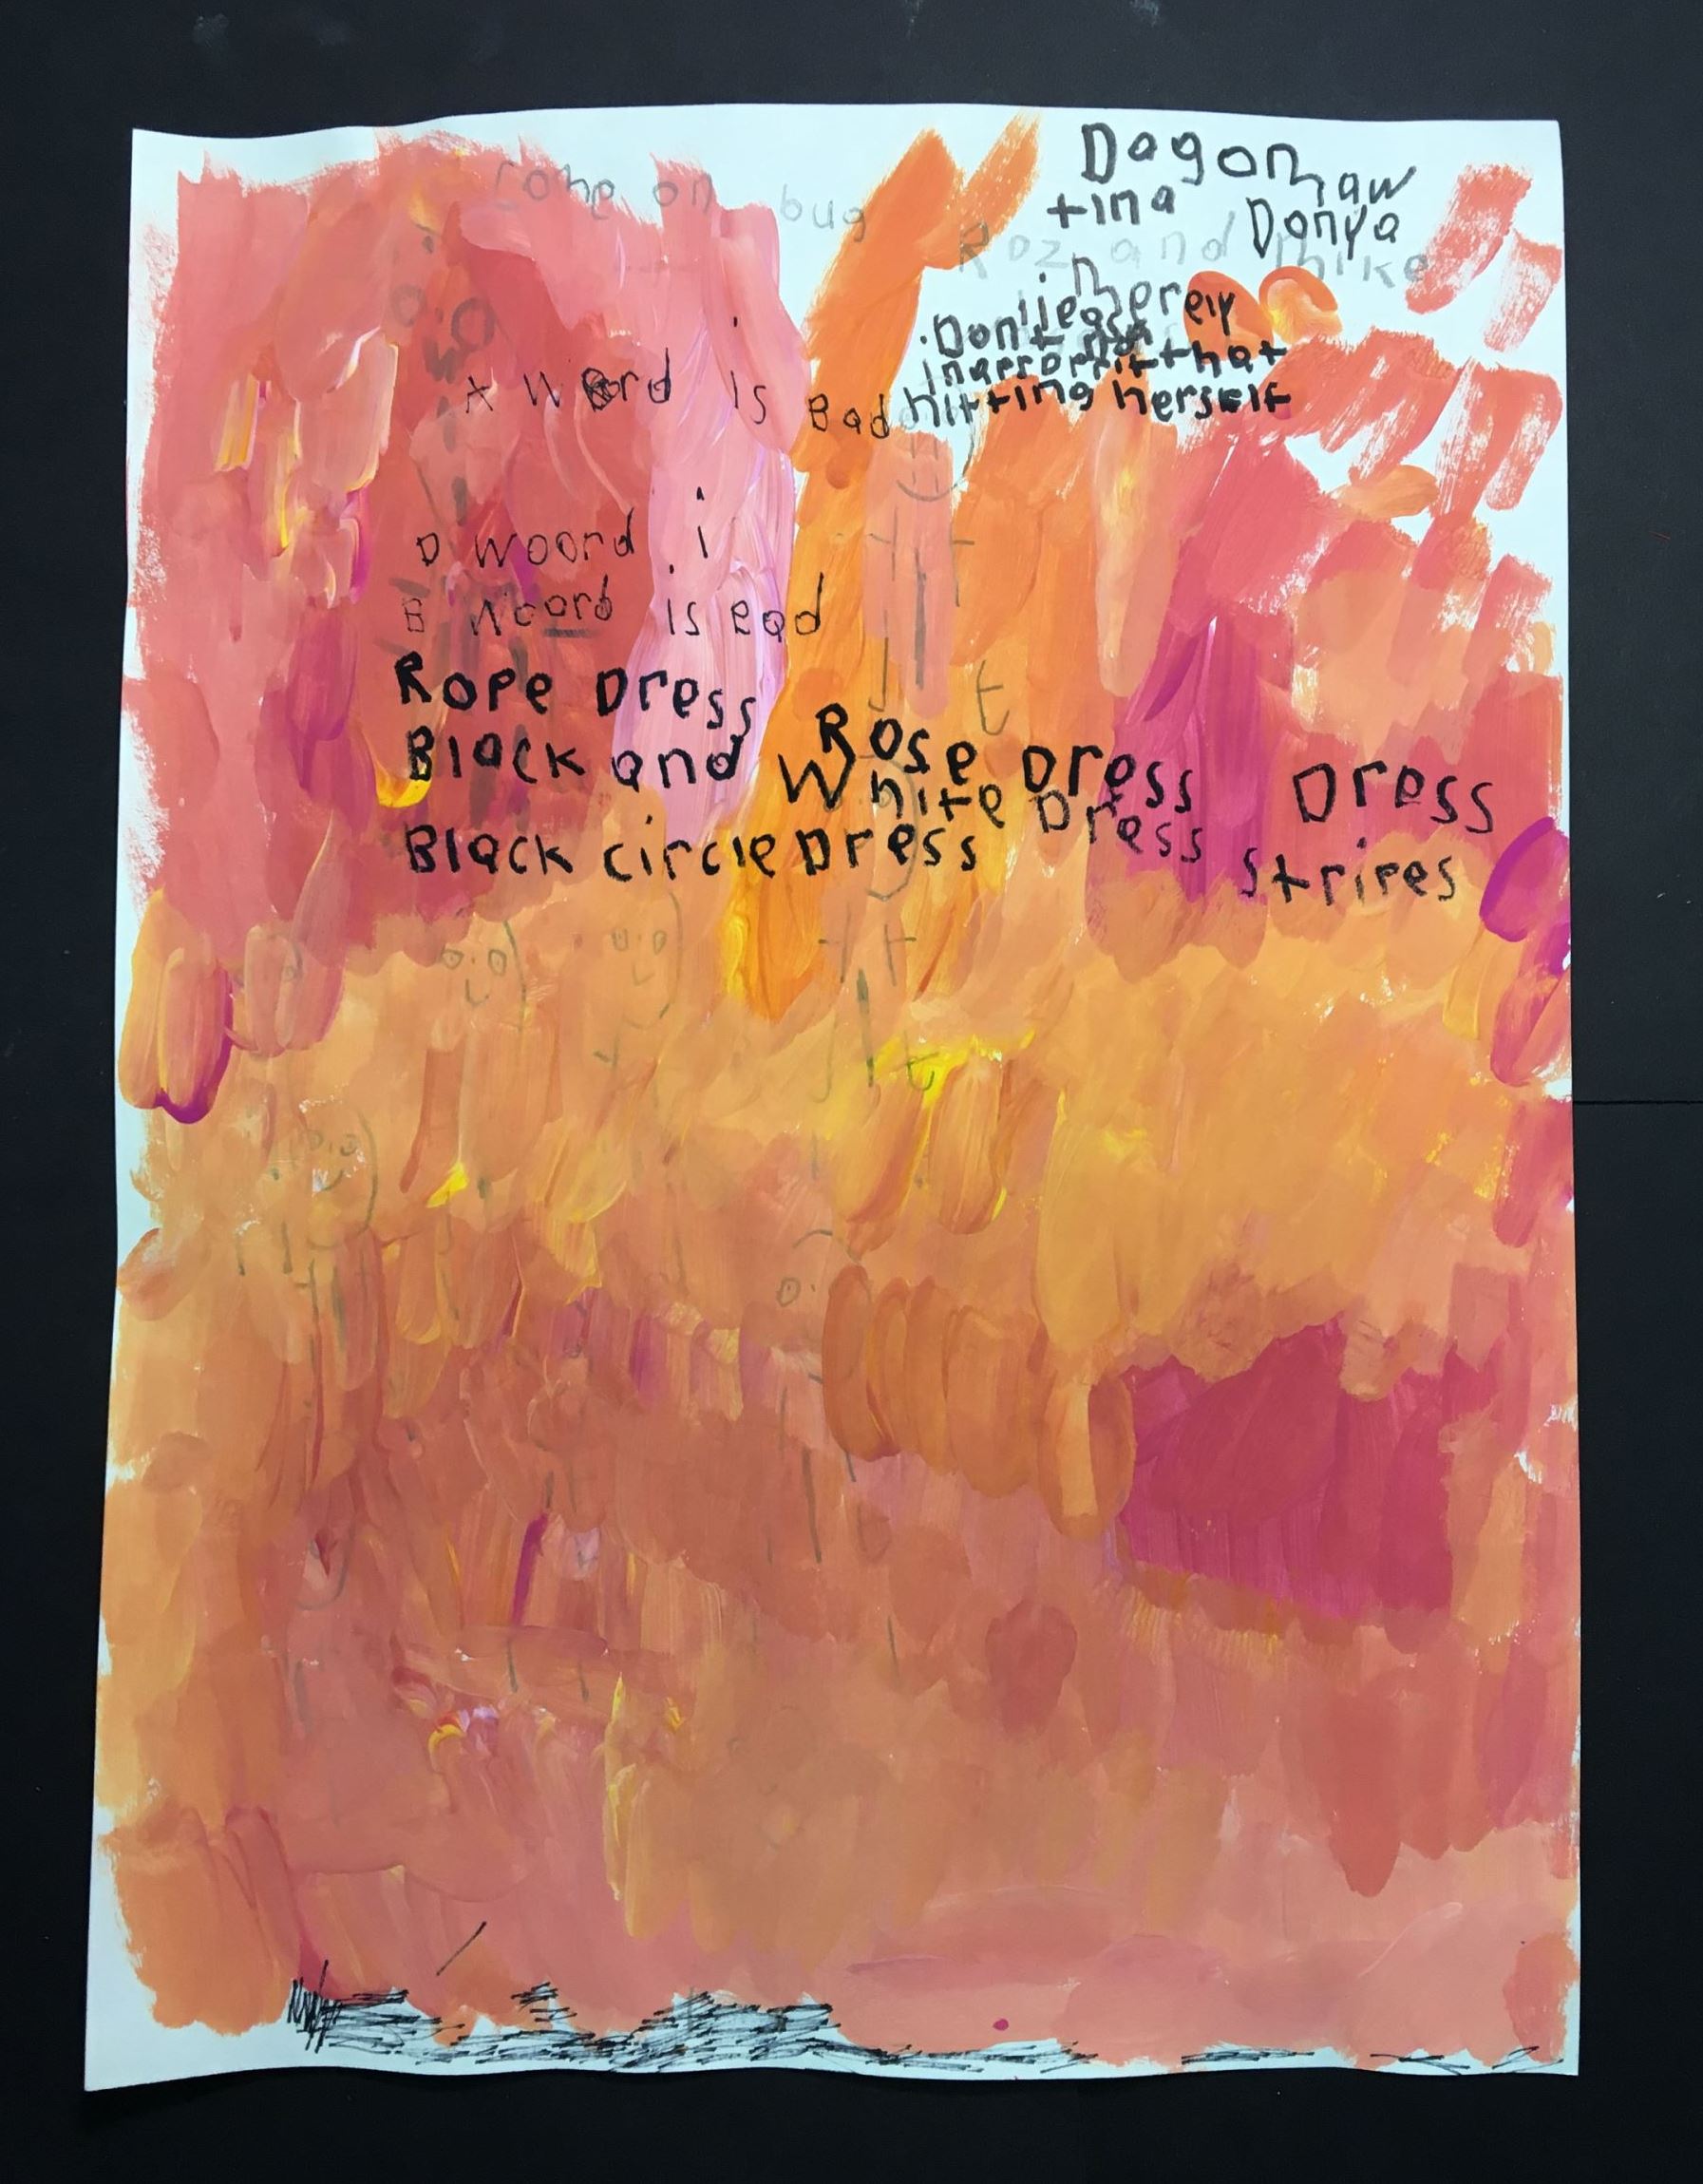 Come on bug
Dagon
haw
tina
Donya
Roz and Mike
Dont
inarrorrit that
hitting herself
A Word is Bad
D Woord i
B Woord is
Rope Dress
Rose Dress
Dress
Black and White Dress
Black circle Dress
strires